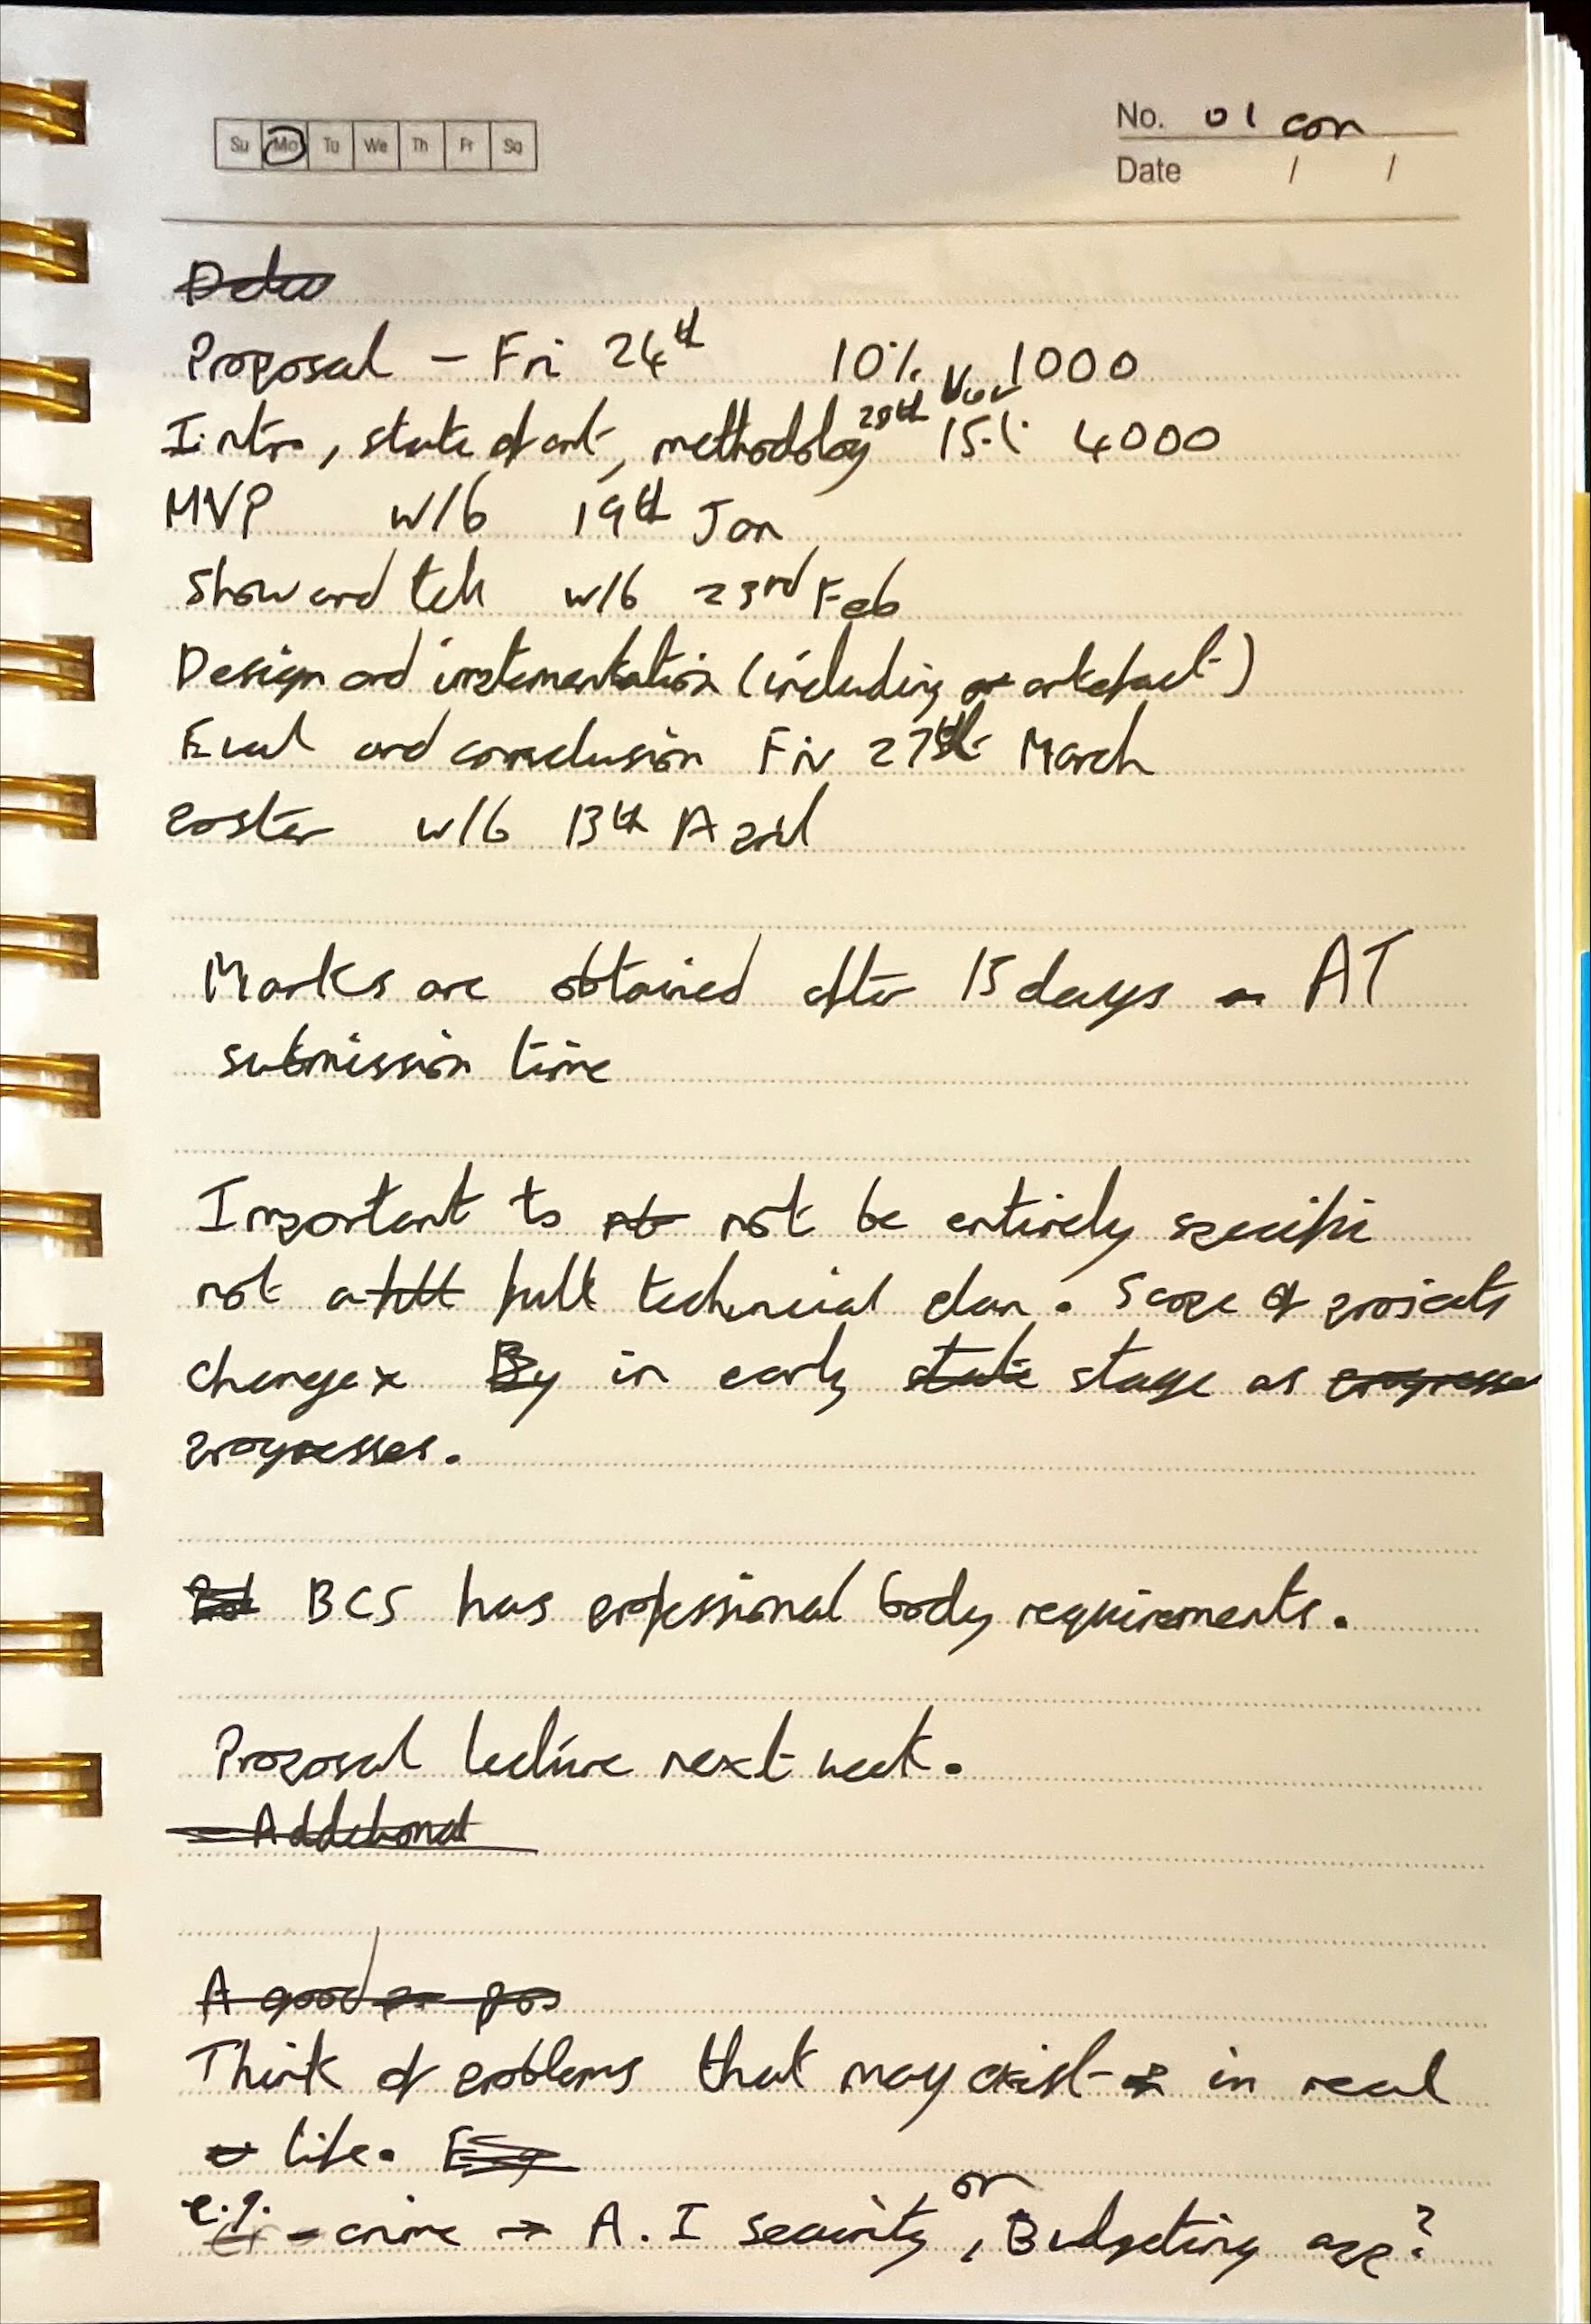 Su Mo Tu We Th Fr Sa
No. 01 con
Date / /
Proposal - Fri 24th 10% 1000
Intro, state of art, methodology 28th Nov 15% 4000
MVP w/b 19th Jan
Show and tell w/b 23rd Feb
Design and implementation (including artefact)
Eval and conclusion Fri 27th March
Poster w/b 13th April
Marks are obtained after 15 days AT
submission time
Important to not be entirely specific
not a full technical plan. Scope of projects
change in early stage as
progresses.
BCS has professional body requirements.
Proposal lecture next week.
Additional
A good
Think of problems that may exist in real
life.
e.g. - crime → A.I security, or Budgeting app?